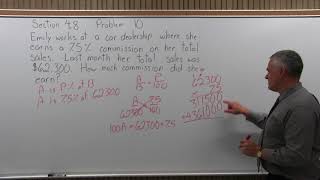 Section 4.8 Problem 10
Emily works at a car dealership where she
earns a 7.5% commission on her total
sales. Last month her total sales was
$62,300. How much commission did she
earn?
A is P% of B
A is 7.5% of 62300
A/B = P/100
A/62300 7.5/100
100A = 62300 * 7.5
62300
7.5
311500
+4361000